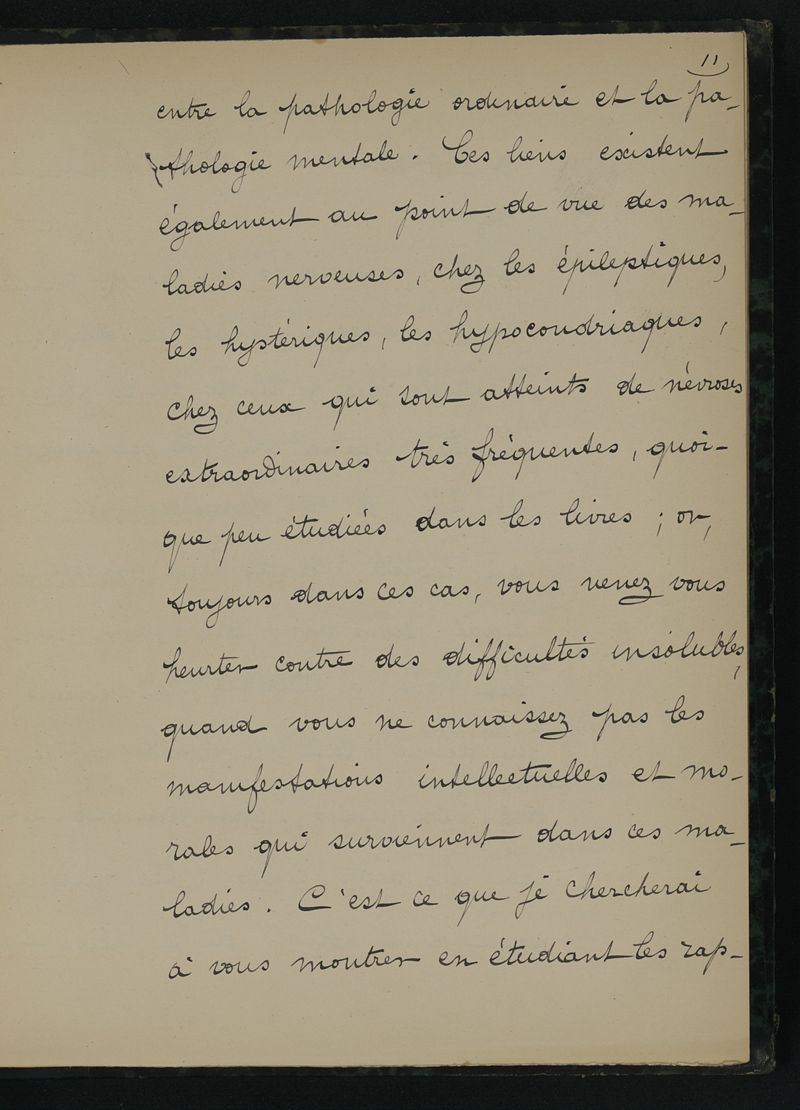 11
entre la pathologie ordinaire et la pa-
thologie mentale. Ces liens existent
également au point de vue des ma-
ladies nerveuses, chez les épileptiques,
les hystériques, les hypocondriaques,
chez ceux qui sont atteints de névroses
extraordinaires très fréquentes, quoi-
que peu étudiées dans les livres ; or,
toujours dans ces cas, vous venez vous
heurter contre des difficultés insolubles,
quand vous ne connaissez pas les
manifestations intellectuelles et mo-
rales qui surviennent dans ces ma-
ladies. C'est ce que je chercherai
à vous montrer en étudiant les rap-